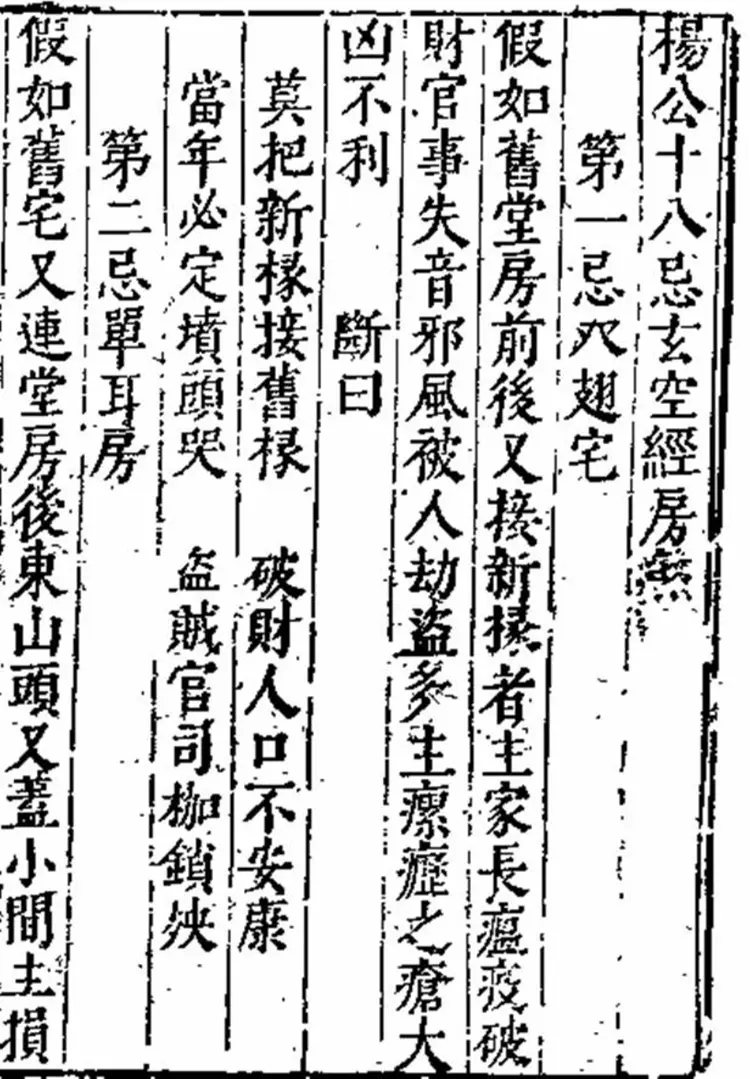 楊公十八忌玄空經房煞
第一忌穴翅宅
假如舊堂房前後又接新椽者主家長瘟疫破
財官事失音邪風被人劫盜多生瘰癧之瘡大
凶不利 斷曰
莫把新椽接舊椽 破財人口不安康
當年必定墳頭哭 盜賊官司枷鎖殃
第二忌單耳房
假如舊宅又連堂房後東山頭又蓋小間主損